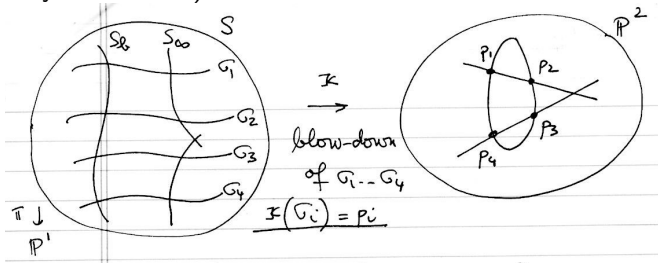 S
S_b S_∞
σ_1
σ_2
σ_3
σ_4
π ↓
P^1
x
→
blow-down
of σ_1...σ_4
x(σ_i) = p_i
P^2
p_1
p_2
p_3
p_4